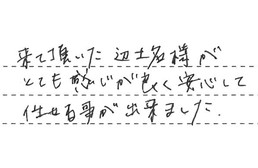 来て頂いた辺土名様が
とても感じが良く安心して
任せる事が出来ました.